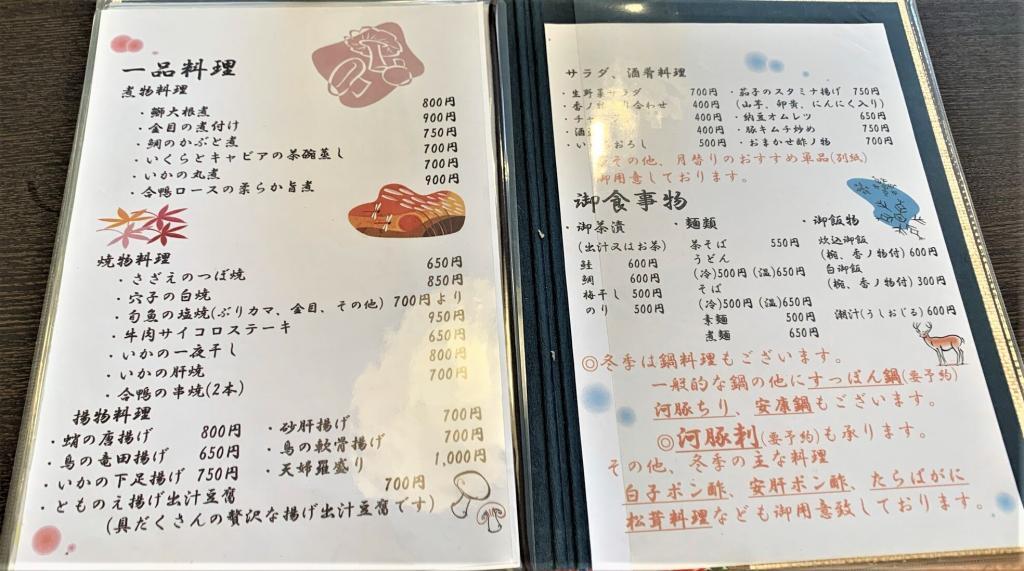 一品料理
煮物料理
・鰤大根煮 800円
・金目の煮付け 900円
・鯛のかぶと煮 750円
・いくらとキャビアの茶碗蒸し 700円
・いかの丸煮 700円
・合鴨ロースの柔らか旨煮 900円
焼物料理
・さざえのつぼ焼 650円
・穴子の白焼 850円
・旬魚の塩焼(ぶりカマ、金目、その他) 700円より
・牛肉サイコロステーキ 950円
・いかの一夜干し 650円
・いかの肝焼 800円
・合鴨の串焼(2本) 700円
揚物料理
・蛸の唐揚げ 800円
・鳥の竜田揚げ 650円
・いかの下足揚げ 750円
・とものえ揚げ出汁豆腐 700円
(具だくさんの贅沢な揚げ出汁豆腐です)
・砂肝揚げ 700円
・鳥の軟骨揚げ 700円
・天婦羅盛り 1,000円
サラダ、酒肴料理
・生野菜サラダ 700円
・香ノ物 り合わせ 400円
・チ 400円
・酒 400円
・い おろし 500円
・茄子のスタミナ揚げ 750円
(山芋、卵黄、にんにく入り)
・納豆オムレツ 650円
・豚キムチ炒め 750円
・おまかせ酢ノ物 700円
その他、月替りのおすすめ単品(別紙)
御用意しております。
御食事物
・御茶漬
(出汁又はお茶)
鮭 600円
鯛 600円
梅干し 500円
のり 500円
・麺類
茶そば 550円
うどん
(冷)500円 (温)650円
そば
(冷)500円 (温)650円
素麺 500円
煮麺 650円
・御飯物
炊込御飯
(椀、香ノ物付) 600円
白御飯
(椀、香ノ物付) 300円
潮汁(うしおじる) 600円
◎冬季は鍋料理もございます。
一般的な鍋の他にすっぽん鍋(要予約)
河豚ちり、安康鍋もございます。
◎河豚刺(要予約)も承ります。
その他、冬季の主な料理
白子ポン酢、安肝ポン酢、たらばがに
松茸料理なども御用意致しております。